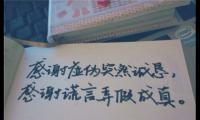 感谢虚伪突然诚恳，
感谢谎言弄假成真。